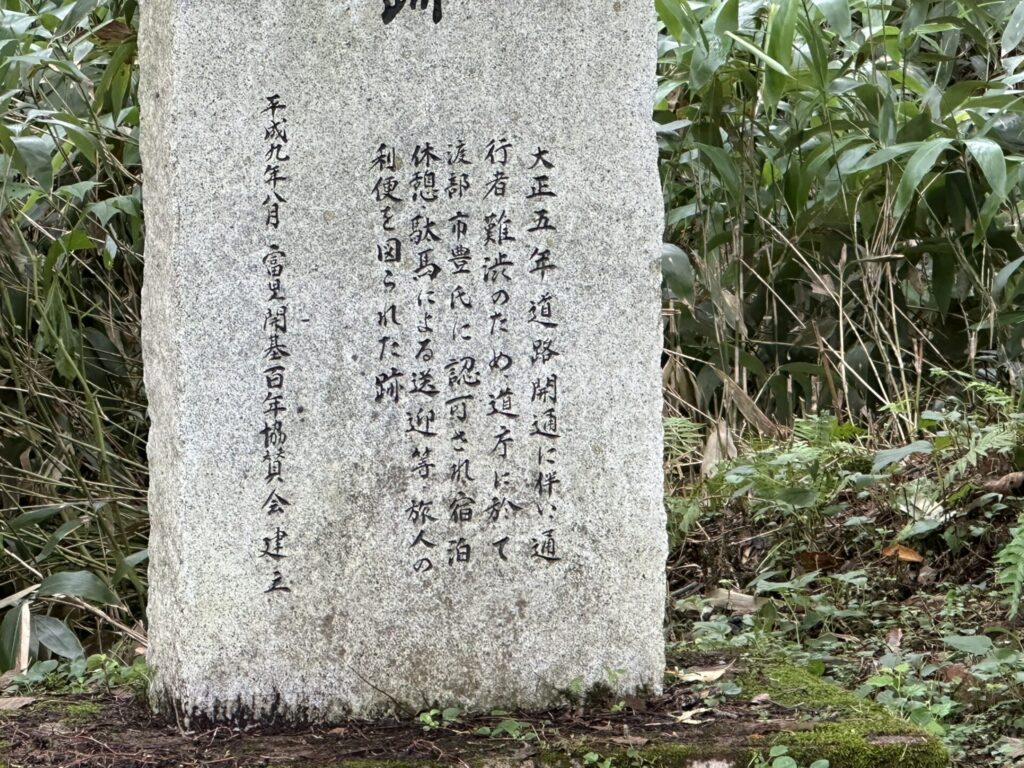 跡
大正五年道路開通に伴い通
行者難渋のため道庁に於て
渡部市豊氏に認可され宿泊
休憩駄馬による送迎等旅人の
利便を図られた跡
平成九年八月 富里開基百年協賛会建立